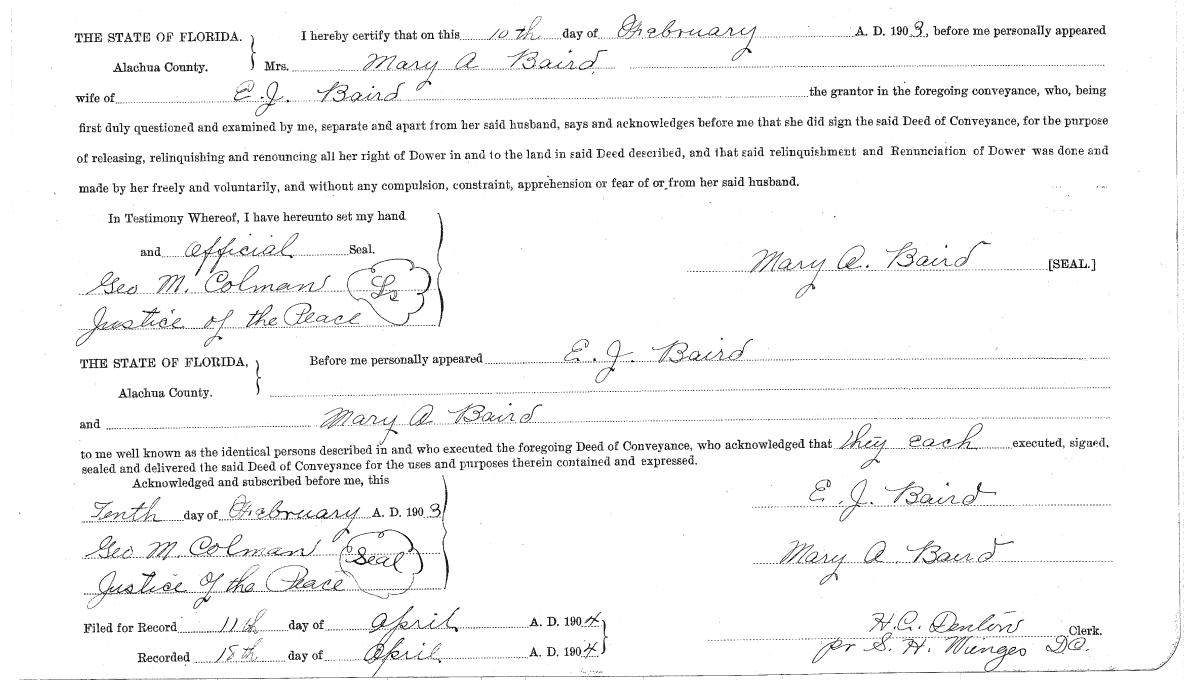 THE STATE OF FLORIDA. I hereby certify that on this 10th day of February A. D. 1903, before me personally appeared
Alachua County. Mrs. Mary A Baird
wife of E.J. Baird the grantor in the foregoing conveyance, who, being
first duly questioned and examined by me, separate and apart from her said husband, says and acknowledges before me that she did sign the said Deed of Conveyance, for the purpose
of releasing, relinquishing and renouncing all her right of Dower in and to the land in said Deed described, and that said relinquishment and Renunciation of Dower was done and
made by her freely and voluntarily, and without any compulsion, constraint, apprehension or fear of or from her said husband.
In Testimony Whereof, I have hereunto set my hand
and official Seal.
Mary A. Baird [SEAL.]
Geo M. Colman Ls
Justice of the Peace
THE STATE OF FLORIDA, Before me personally appeared E. J. Baird
Alachua County.
and Mary A Baird
to me well known as the identical persons described in and who executed the foregoing Deed of Conveyance, who acknowledged that they each executed, signed,
sealed and delivered the said Deed of Conveyance for the uses and purposes therein contained and expressed.
Acknowledged and subscribed before me, this
E. J. Baird
Tenth day of February A. D. 1903
Geo M. Colman Seal
Mary A. Baird
Justice of the Peace
Filed for Record 11th day of April A. D. 1904
H.C. Denton Clerk.
Recorded 18th day of April A. D. 1904
pr S. H. Wienges DC.